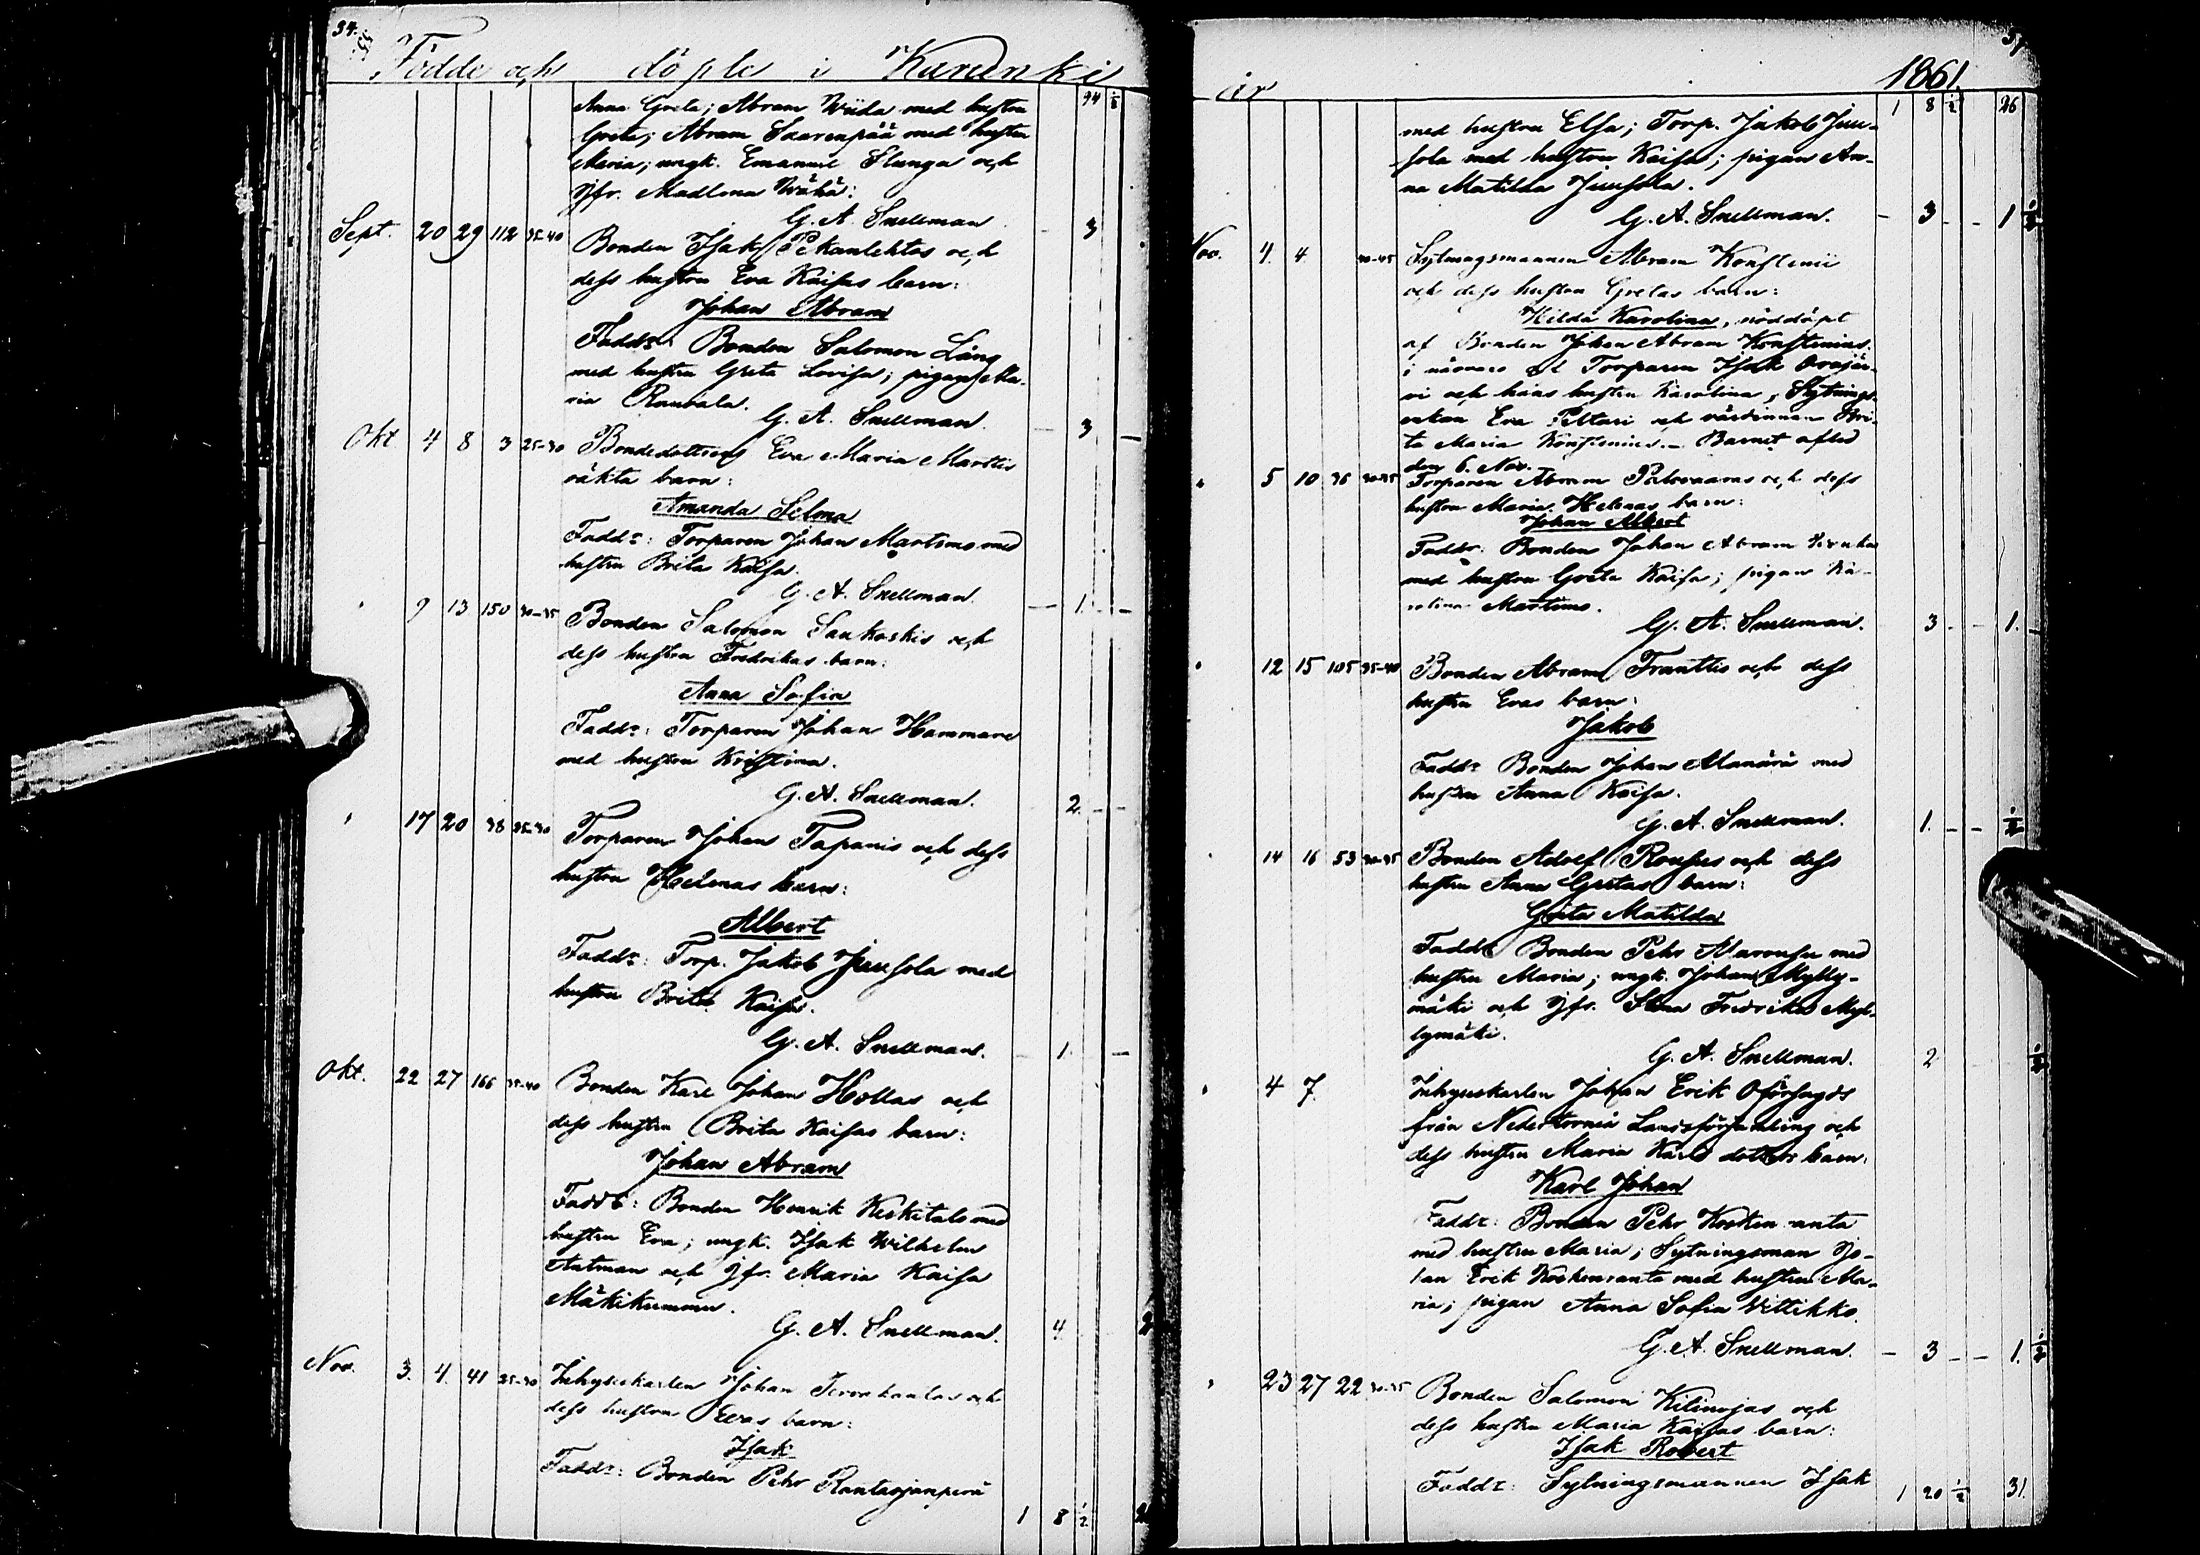 34.
Födde och döple i Karunki
94 ½
Anna Greta; Abram Wiida med hustru
Greta; Abram Saarenpää med hustru
Maria; ungk. Emanuel Slunga och
Jfr. Madlena Wähä.
G. A. Snellman - 3
Sept. 20 29 112 35-40 Bonden Isak Pekanlehtos och
dess hustru Eva Kaisas barn:
Johan Abram
Faddr: Bonden Salomon Lång
med hustru Greta Lovisa; pigan Ma-
ria Rautiala.
G. A. Snellman. - 3 -
Okt 4 8 3 25-30 Bondedottren Eva Maria Marttis
oäkta barn:
Amanda Selma
Faddr: Torparen Johan Martimo med
hustru Brita Kaisa.
G. A. Snellman. - 1. -
" 9 13 150 30-35 Bonden Salomon Saukoskis och
dess hustru Fredrikas barn:
Anna Sofia
Faddr: Torparen Johan Hammare
med hustru Kristina.
G. A. Snellman. 2. - -
" 17 20 38 25-30 Torparen Johan Tapanis och dess
hustru Helenas barn:
Albert
Faddr: Torp. Jakob Juusola med
hustru Brita Kaisa.
G. A. Snellman. - 1. -
Okt. 22 27 166 35-40 Bonden Karl Johan Hollas och
dess hustru Brita Kaisas barn:
Johan Abram
Faddr: Bonden Henrik Keskitalo med
hustru Eva; ungk. Isak Wilhelm
Autman och Jfr. Maria Kaisa
Mäkikummu.
G. A. Snellman. 4. 2
Nov. 3. 4. 41 25-30 Inhyseskarlen Johan och
dess hustru Evas barn:
Isak
Faddr: Bonden Pehr Rantaojanperä
1 8 ½
år 1861.
1 8 ½ 26
med hustru Elsa; Torp. Jakob Juu-
sola med hustru Kaisa; pigan An-
na Matilda Juusola.
G. A. Snellman. - 3 - - 1 ½
Nov. 4. 4. 40-45 Sytningsmannen Abram Konstenii
och dess hustru Gretas barn:
Hilda Karolina, nöddöpt
af Bonden Johan Abram Konstenius
i närvaro af Torparen Isak Orajär-
vi och hans hustru Karolina, Sytnings-
enkan Eva Peltari och värdinnan Bri-
ta Maria Konstenius. - Barnet afled
den 6. Nov.
" 5 10 36 30-35 Torparen Abram Palovaaras och dess
hustru Maria Helenas barn:
Johan Albert
Faddr: Bonden Johan Abram
med hustru Greta Kaisa; pigan Ka-
rolina Martimo.
G. A. Snellman. 3 - - 1. -
" 12 15 105 35-40 Bonden Abram Franttis och dess
hustru Evas barn:
Jakob
Faddr Bonden Johan Alamäärä med
hustru Anna Kaisa.
G. A. Snellman. 1. - - ½
" 14 16 53 30-35 Bonden Adolf Roupas och dess
hustru Anna Gretas barn:
Greta Matilda
Faddr Bonden Pehr Marousu med
hustru Maria; ungk. Johan Mylly-
mäki och Jfr. Stina Fredrika Myl-
lymäki.
G. A. Snellman. 2 ½
" 4 7. Inhyseskarlen Johan Erik Oförsagds
från Nedertorneå Landsförsamling och
dess hustru Maria Karls dotters barn:
Karl Johan
Faddr: Bonden Pehr Koskenranta
med hustru Maria; Sytningsman Jo-
han Erik Koskenranta med hustru Ma-
ria; pigan Anna Sofia Vittikko.
G. A. Snellman. - 3 - - 1. ½
" 23 27 22 30-35 Bonden Salomon Kilinojas och
dess hustru Maria Kaisas barn:
Isak Robert
Faddr: Sytningsmannen Isak
1 20 ½ 31.